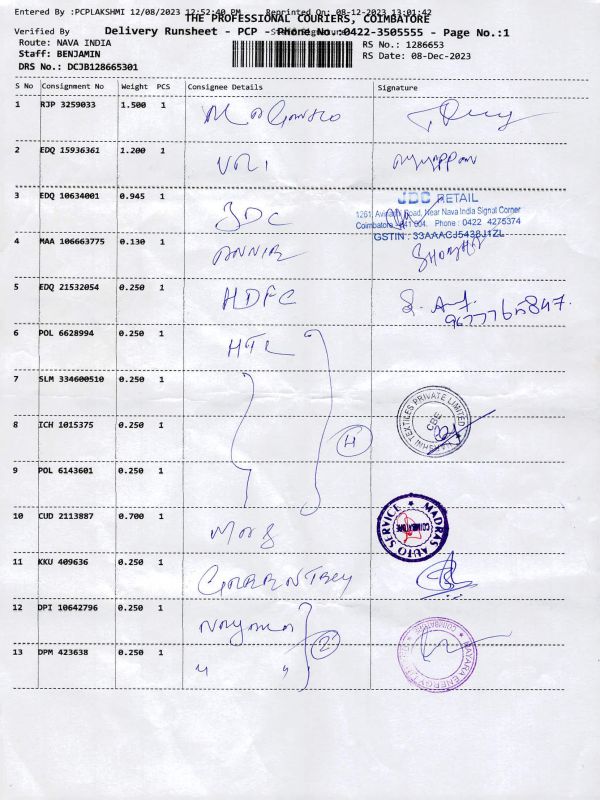 Entered By :PCPLAKSHMI 12/08/2023 12:52:40 PM Reprinted On: 08-12-2023 13:01:42
THE PROFESSIONAL COURIERS, COIMBATORE
Verified By
Delivery Runsheet - PCP - Phone No.:0422-3505555 - Page No.:1
Route: NAVA INDIA
RS No.: 1286653
Staff: BENJAMIN
RS Date: 08-Dec-2023
DRS No.: DCJB128665301
S No Consignment No Weight PCS Consignee Details Signature
1 RJP 3259033 1.500 1
2 EDQ 15936361 1.200 1 VRL Ayyappan
3 EDQ 10634001 0.945 1 JDC
JDC RETAIL
1261, Avinashi Road, Near Nava India Signal Corner
Coimbatore - 641 004. Phone : 0422 4275374
GSTIN : 33AAACJ5438J1ZL
4 MAA 106663775 0.130 1 ANNIE
5 EDQ 21532054 0.250 1 HDFC
6 POL 6628994 0.250 1 HTL
7 SLM 334600510 0.250 1
8 ICH 1015375 0.250 1 4
HARSHNI TEXTILES PRIVATE LIMITED
CBE
9 POL 6143601 0.250 1
10 CUD 2113887 0.700 1
MADRAS AUTO SERVICE
COIMBATORE
11 KKU 409636 0.250 1
12 DPI 10642796 0.250 1 Nayara
2
13 DPM 423638 0.250 1 " "
NAYARA ENERGY LIMITED
COIMBATORE